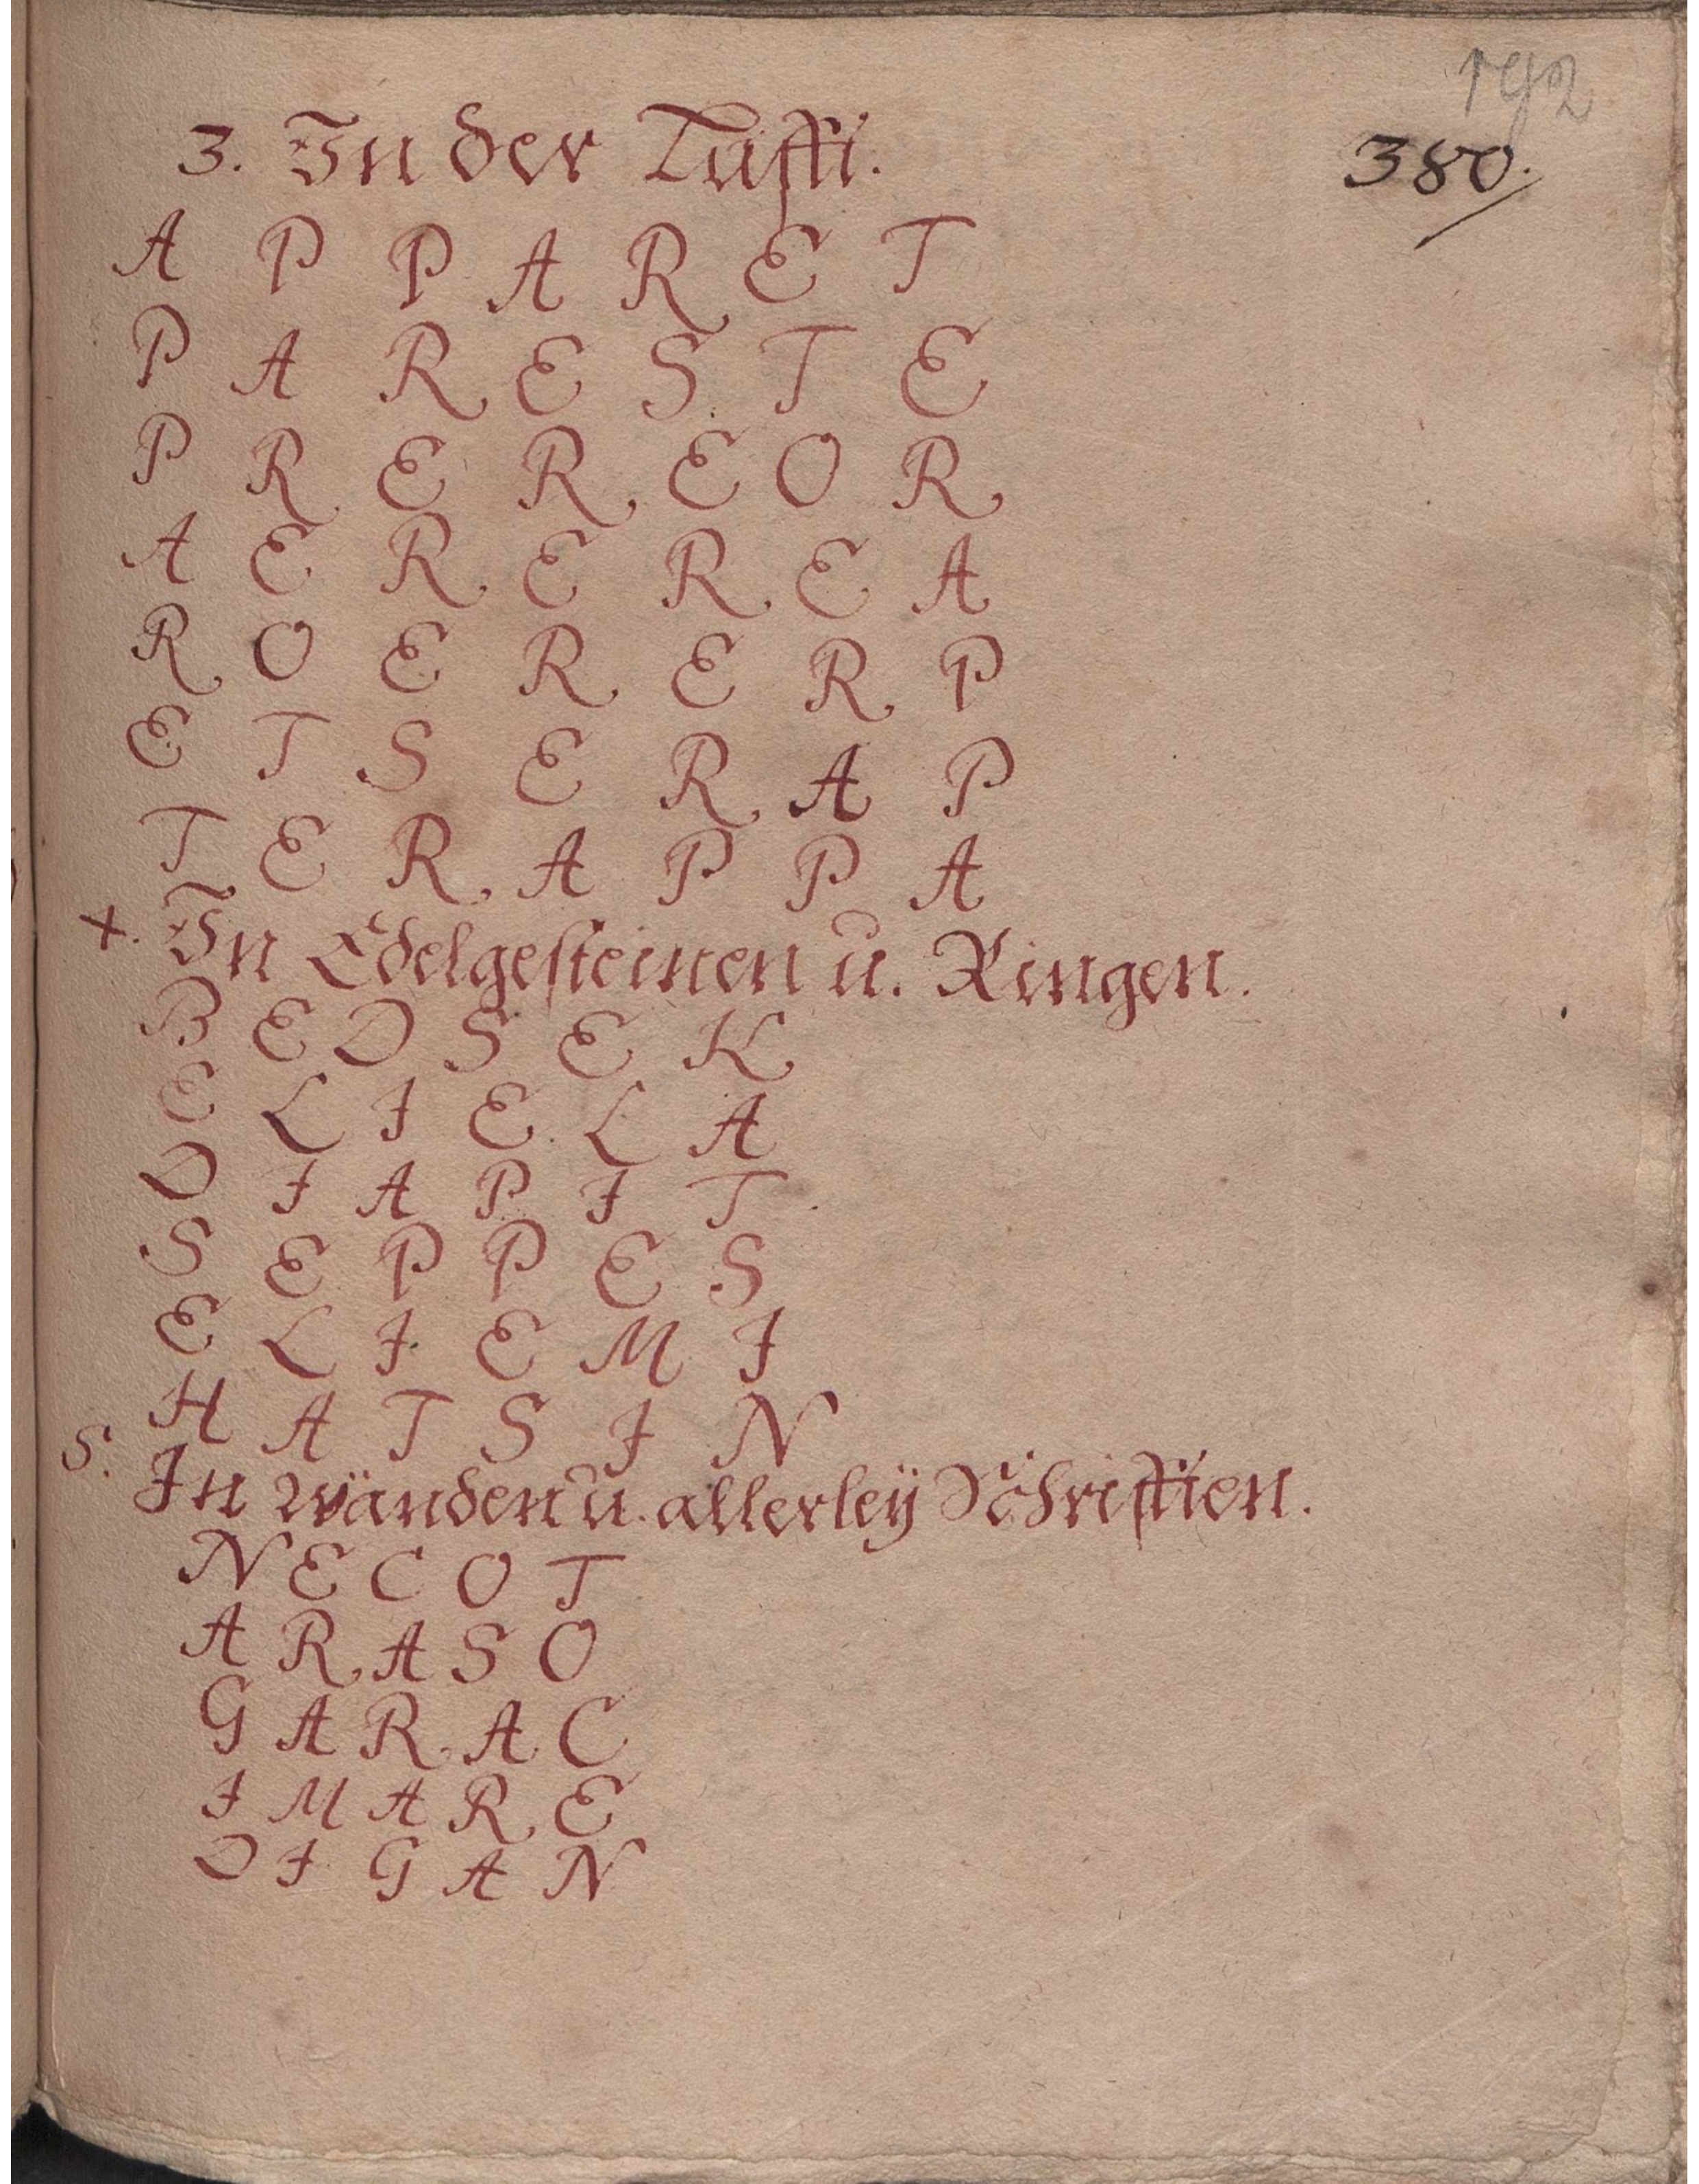 192
380.
3. In der Lufft.
A P P A R E T
P A R E S T E
P R E R E O R
A E R E R E A
R O E R E R P
E T S E R A P
T E R A P P A
4. In Edelgesteinen u. Ringen.
B E D S E K
E L I E L A
D I A P I T
S E P P E S
E L I E M I
H A T S I N
5. In wänden u. allerleÿ Schrifften.
N E C O T
A R A S O
G A R A C
I M A R E
D I G A N